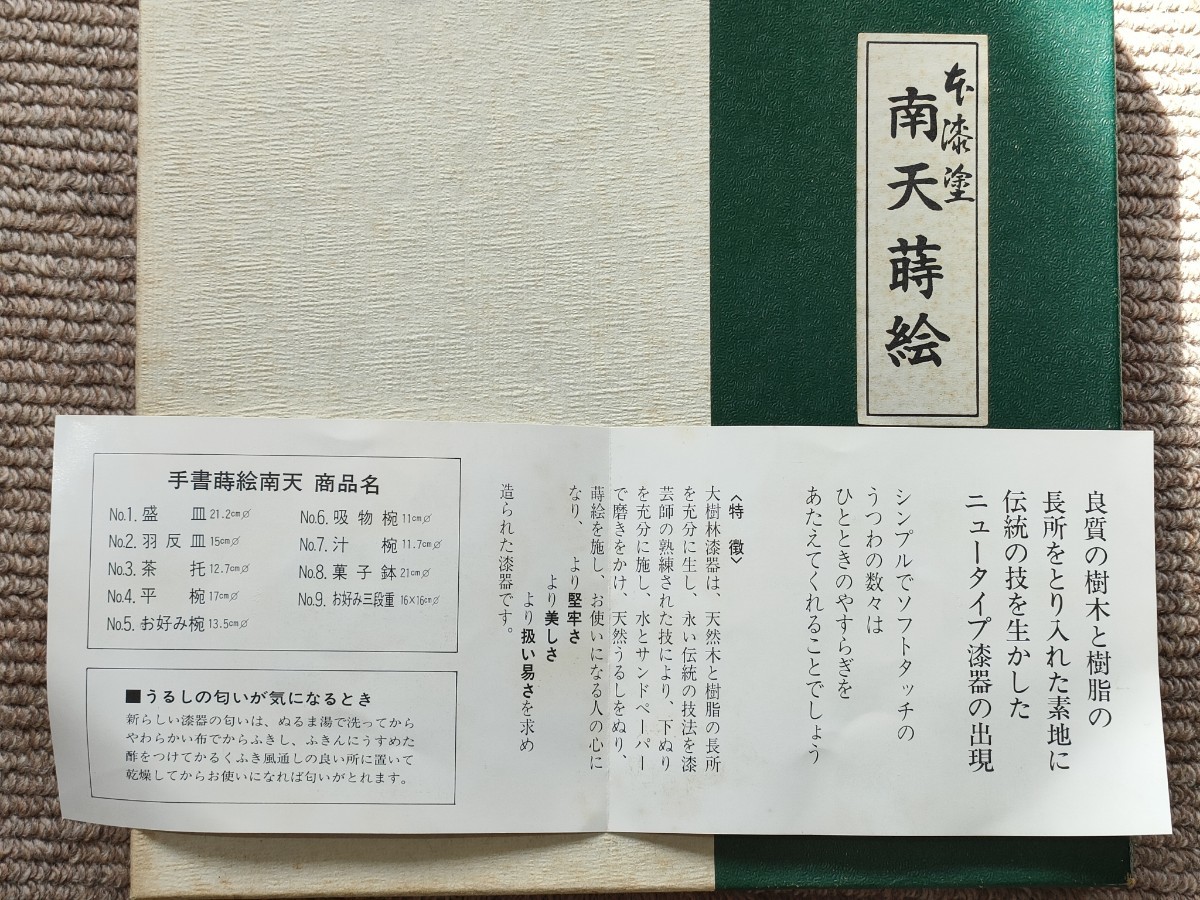 本漆塗
南天蒔絵
良質の樹木と樹脂の
長所をとり入れた素地に
伝統の技を生かした
ニュータイプ漆器の出現
シンプルでソフトタッチの
うつわの数々は
ひとときのやすらぎを
あたえてくれることでしょう
〈特 徴〉
大樹林漆器は、天然木と樹脂の長所
を充分に生し、永い伝統の技法を漆
芸師の熟練された技により、下ぬり
を充分に施し、水とサンドペーパー
で磨きをかけ、天然うるしをぬり、
蒔絵を施し、お使いになる人の心に
なり、 より堅牢さ
より美しさ
より扱い易さを求め
造られた漆器です。
手書蒔絵南天 商品名
No.1. 盛 皿 21.2cm∅
No.2. 羽反皿 15cm∅
No.3. 茶 托 12.7cm∅
No.4. 平 椀 17cm∅
No.5. お好み椀 13.5cm∅
No.6. 吸物椀 11cm∅
No.7. 汁 椀 11.7cm∅
No.8. 菓子鉢 21cm∅
No.9. お好み三段重 16×16cm∅
■うるしの匂いが気になるとき
新らしい漆器の匂いは、ぬるま湯で洗ってから
やわらかい布でからふきし、ふきんにうすめた
酢をつけてかるくふき風通しの良い所に置いて
乾燥してからお使いになれば匂いがとれます。